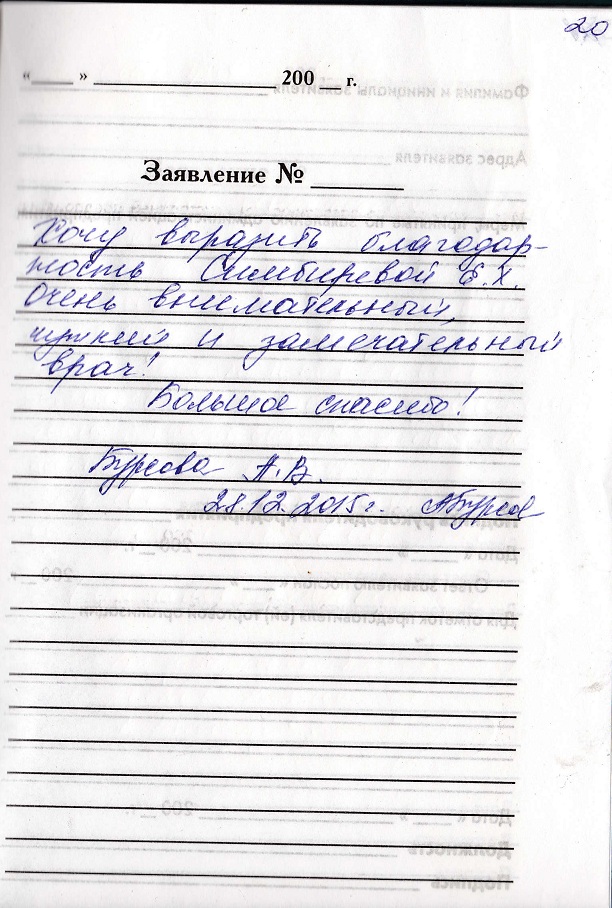 20
«____» ____________ 200 __ г.
Заявление № ________
Хочу выразить благодар-
ность Симбиревой Е.Х.
Очень внимательный,
чуткий и замечательный
врач!
Большое спасибо!
Бурсова А.В.
28.12.2015г. АБурсов